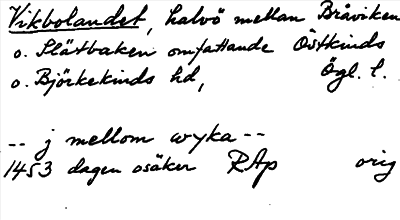 Vikbolandet, halvö mellan Bråviken
o. Slätbaken omfattande Östkinds
o. Björkekinds hd, Ögl. l.
-- j mellom wyka --
1453 dagen osäker RAp orig